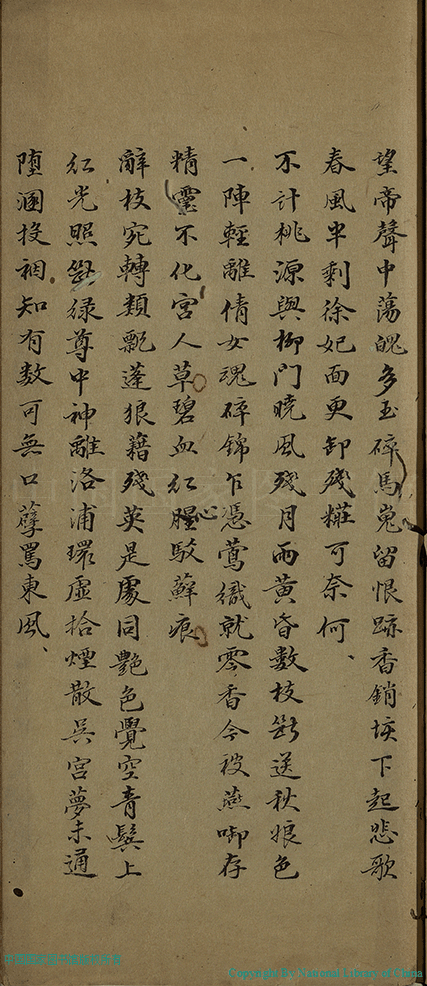 望帝聲中蕩魄多玉碎馬嵬留恨跡香銷垓下起悲歌
春風半剩徐妃面更卸殘糚可奈何、
不計桃源與柳門曉風殘月雨黃昏數枝斜送秋娘色
一陣輕離倩女魂碎錦乍憑鶯織就零香今被燕啣存
精靈不化宮人草碧血紅腥駁蘚痕
辭枝宛轉類飄蓬狼藉殘英是處同艷色覺空青鬂上
紅光照綠尊中神離洛浦環虛拾煙散吳宮夢未通
墮溷投裀知有数可無口孽罵東風、
Copyright By National Library of China